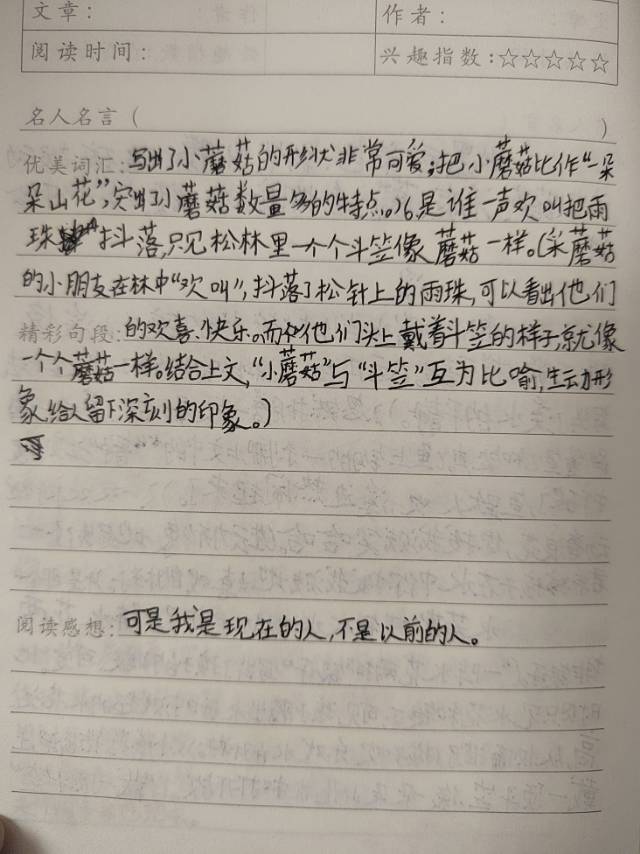 文章： 作者：
阅读时间： 兴趣指数：☆☆☆☆☆
名人名言（ ）
优美词汇：写出了小蘑菇的形状非常可爱；把小蘑菇比作“一朵
朵山花”，突出了小蘑菇数量多的特点。）6.是谁一声欢叫把雨
珠抖落，只见松林里一个个斗笠像蘑菇一样。（采蘑菇
的小朋友在林中“欢叫”，抖落了松针上的雨珠，可以看出他们
精彩句段：的欢喜、快乐。而他们头上戴着斗笠的样子，就像
一个个蘑菇一样。结合上文，“小蘑菇”与“斗笠”互为比喻，生动形
象，给人留下深刻的印象。）
阅读感想：可是我是现在的人，不是以前的人。